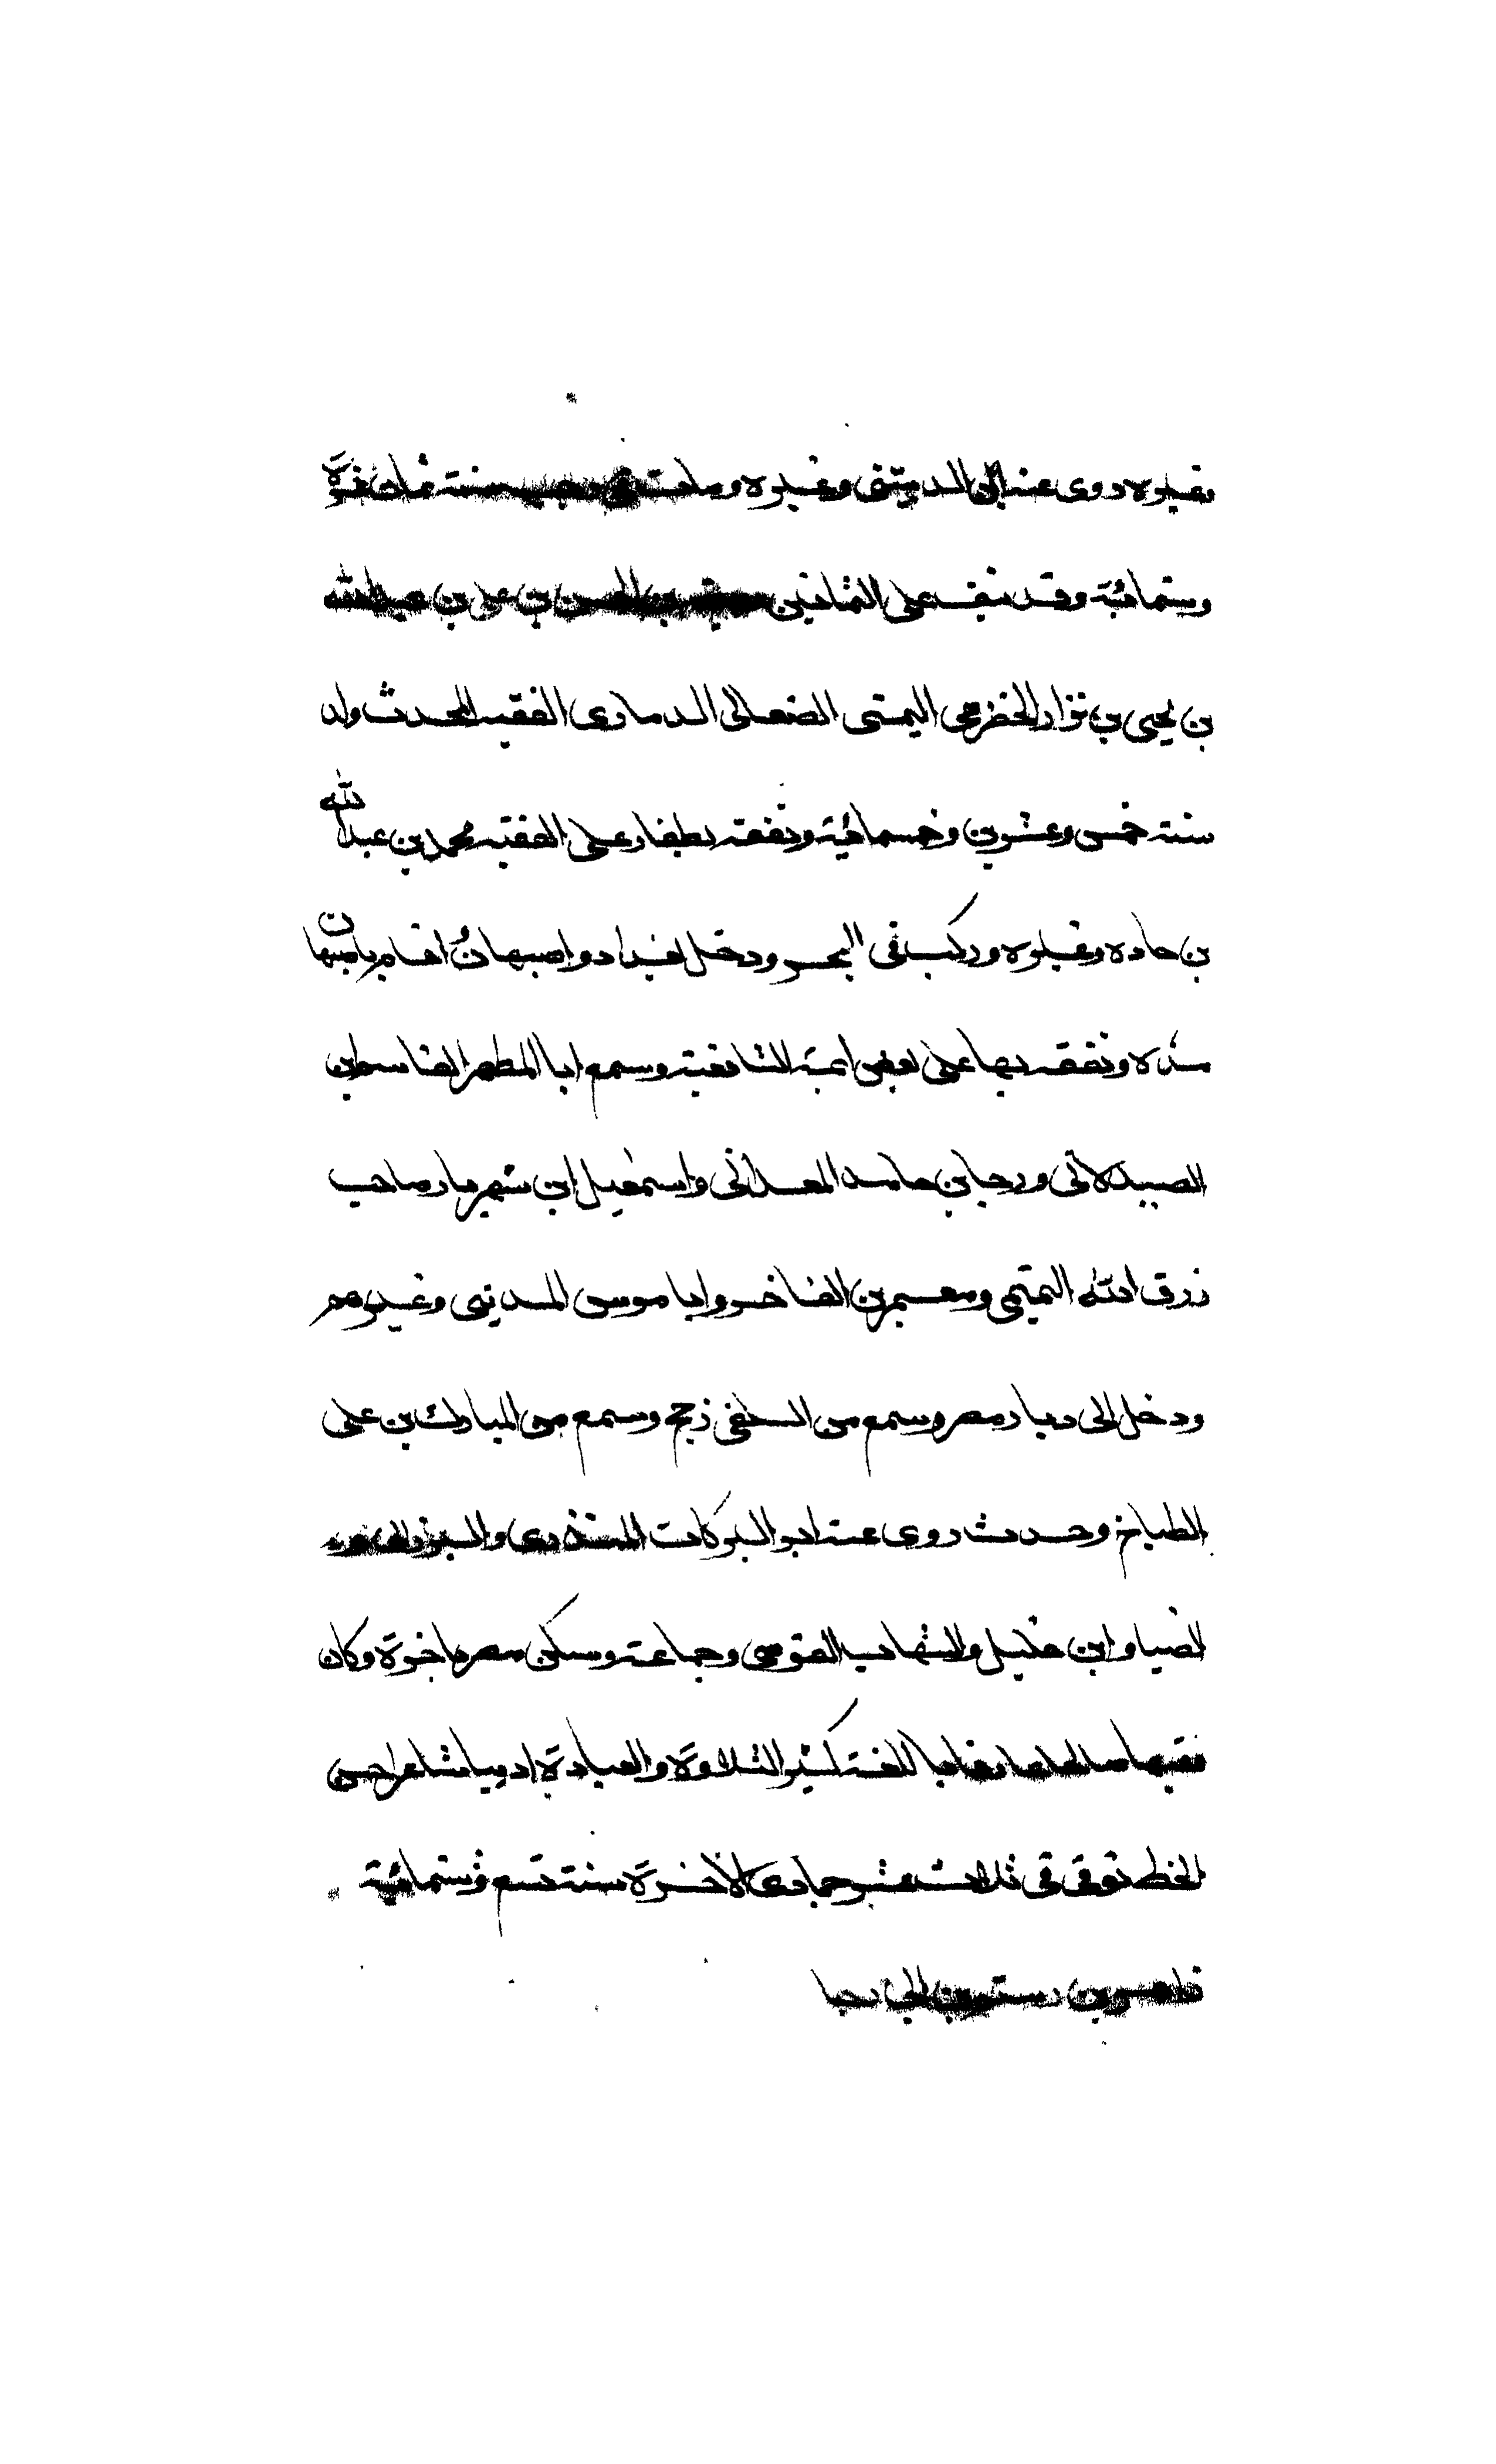 وغيره روى عنه ابن الدبيثى وغيره ومات فى رجب سنة ثمان عشرة
وستمائة وقد نيف على الثمانين ربيعة بن الحسن بن على بن عبد الله
بن يحيى بن نزار الحضرمى اليمنى الصنعانى الدمارى الفقيه المحدث ولد
سنة خمس وعشرين وخمسمائة وتفقه بظفار على الفقيه محمد بن عبد الله
بن حاده وغيره وركب فى البحر ودخل بغداد واصبهان اقام باصبهان
مدة وتفقه بها على بعض ايمة الشافعية وسمع ابا المطهر القاسم بن
الصيدلانى ورجا بن حامد المعدانى واسمعيل ابن شهريار صاحب
رزق الله التميمى ومعمر بن الفاخر وابا موسى المدينى وغيرهم
ودخل الى ديار مصر وسمع من السلفى وحج وسمع من المبارك بن على
الطباخ وحدث روى عنه ابو البركات المنذرى والبرزالى
الضيا وابن خليل والشهاب القوصى وجماعة وسكن مصر باخرة وكان
فقيها صالحا عارفا باللغة كثير التلاوة والعبادة اديبا شاعرا حسن
الخط توفى فى ثلاث عشر جمادى الاخرة سنة تسع وستمائة